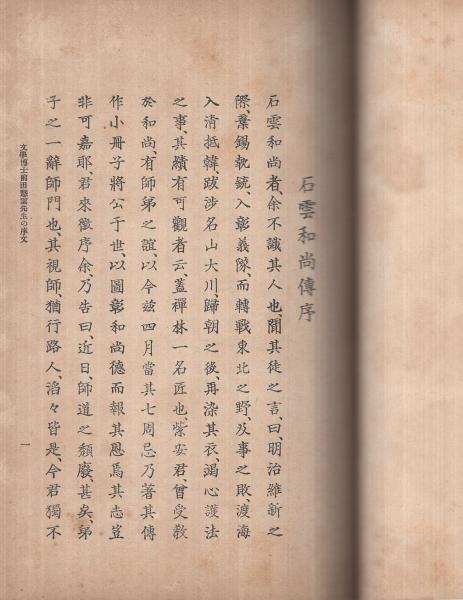 石雲和尚傳序
石雲和尚者、余不識其人也、聞其徒之言、曰、明治維新之
際、棄錫執銃、入彰義隊、而轉戰東北之野、及事之敗、渡海
入清抵韓、跋涉名山大川、歸朝之後、再染其衣、竭心護法
之事、其績有可觀者云、蓋禪林一名匠也、紫安君、曾受教
於和尚、有師弟之誼、以今玆四月當其七周忌乃著其傳
作小冊子將公于世、以圖彰和尚德而報其恩焉其志豈
非可嘉耶、君來徵序余、乃告曰、近日、師道之頽廢、甚矣、弟
子之一辭師門也、其視師、猶行路人、滔々皆是、今君獨不
文學博士前田慧雲先生の序文
一